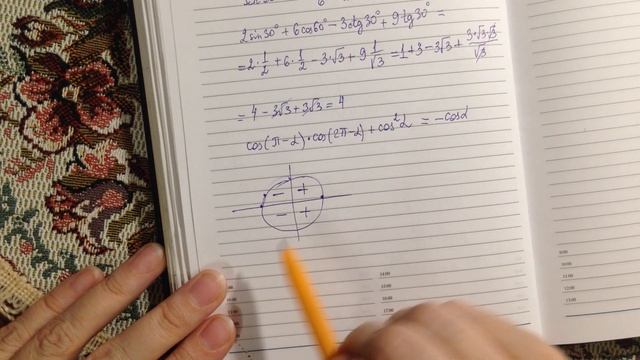 2 sin 30° + 6 cos 60° − 3 ctg 30° + 9 tg 30° =
= 2 · 1/2 + 6 · 1/2 − 3 · √3 + 9 · 1/√3 = 1 + 3 − 3√3 + 3 · √3 · √3/√3
= 4 − 3√3 + 3√3 = 4
cos(π − α) · cos(2π − α) + cos² α = − cos α
− +
− +
9:00
10:00
11:00
12:00
13:00
14:00
15:00
16:00
17:00